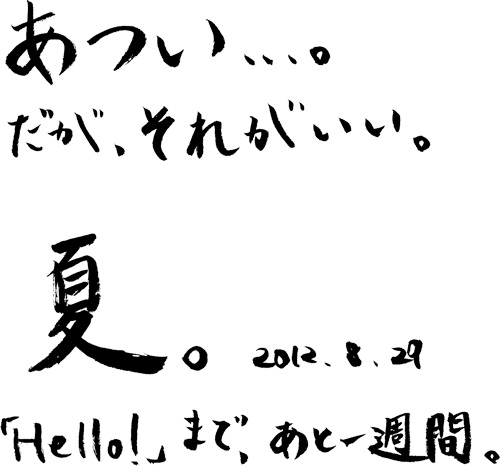 あつい...。
だが、それがいい。
夏。 2012.8.29
「Hello!」まで、あと一週間。